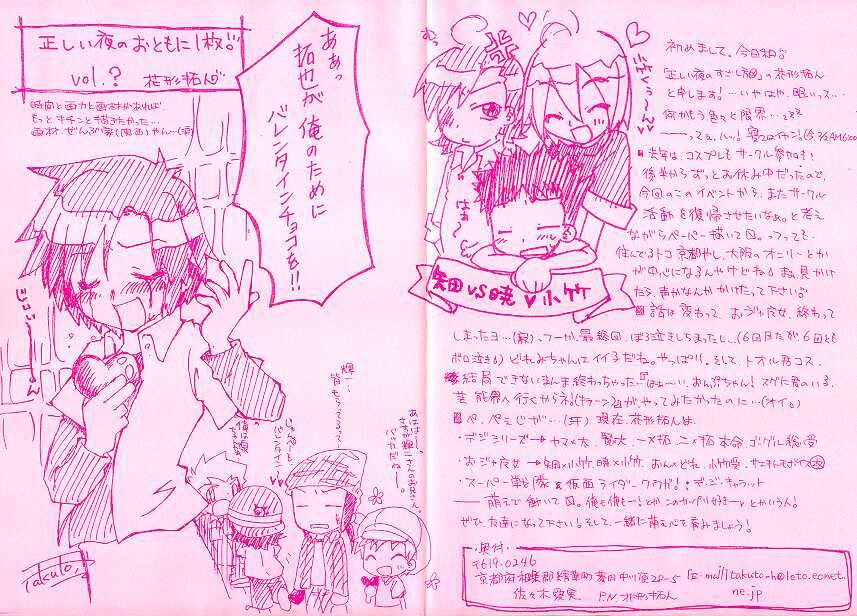 正しい夜のおともに1枚♡
vol.?　花形拓んず
時間と画力と画材があれば、
もっとキチンと描きたかった…
画材、ぜんぶ家(関西)やん…(笑)
ああっ
拓也が俺のために
バレンタインチョコを!!
輝一…
皆もらってるって…
あはは!
じゅんぺーと
バレンタイン♡
俺は
Takuto.
矢田 vs 暁 ♥ 小竹
初めまして。今日和♡
「正しい夜のすごし方」の花形拓ん
と申します!…いやはや、眠いっス…
何かもう色々と限界…ZZZ
――ってぇ、ハッ! 寝てはイケン!
去年は、コスプレもサークル参加も
後半からずっとお休み中だったので、
今回のこのイベントから、またサークル
活動を復帰させたいなあ。と考え
ながらペーパー描いて□。つっても、
住んでるトコ京都やし、大阪のオンリーとか
が中心になるんやけどね! まぁ見かけ
たら、声かなんかかけたって下さい♡
話は変わって、おジャ魔女、終わって
しまったヨ…(寂)、つーか、最終回、ぼろ泣きしちまったし…(6回見たが、6回とも
ボロ泣き♡)どれみちゃんはイイ子だね。やっぱり。そして、トオル君コス、
結局できないまんま終わっちゃった…「はぁ〜い、おんぷちゃん! スグに君のいる、
芸能界へ行くからネ!(キラーン)」が、やってみたかったのに…(オイ。)
ペ、ペえじが…(汗) 現在、花形拓んは、
・デジシリーズ→ヤマ×太、賢大、一×拓、二×拓 本命 ゴーグル総受
・おジャ魔女→矢田×小竹、暁×小竹、おん×どれ、小竹受、
・スーパー戦隊&仮面ライダークウガ!・デ・ジ・キャラット
――萌えで働いて□。俺も俺もー! とか、このカップリ好きーッ♡とかいう人!
ぜひ友達になって下さい! そして一緒に萌え心を育みましょう!
・奥付・
〒619-0246
佐々木 P.N 花形拓ん
E-mail takuto-h@leto.eonet.
ne.jp